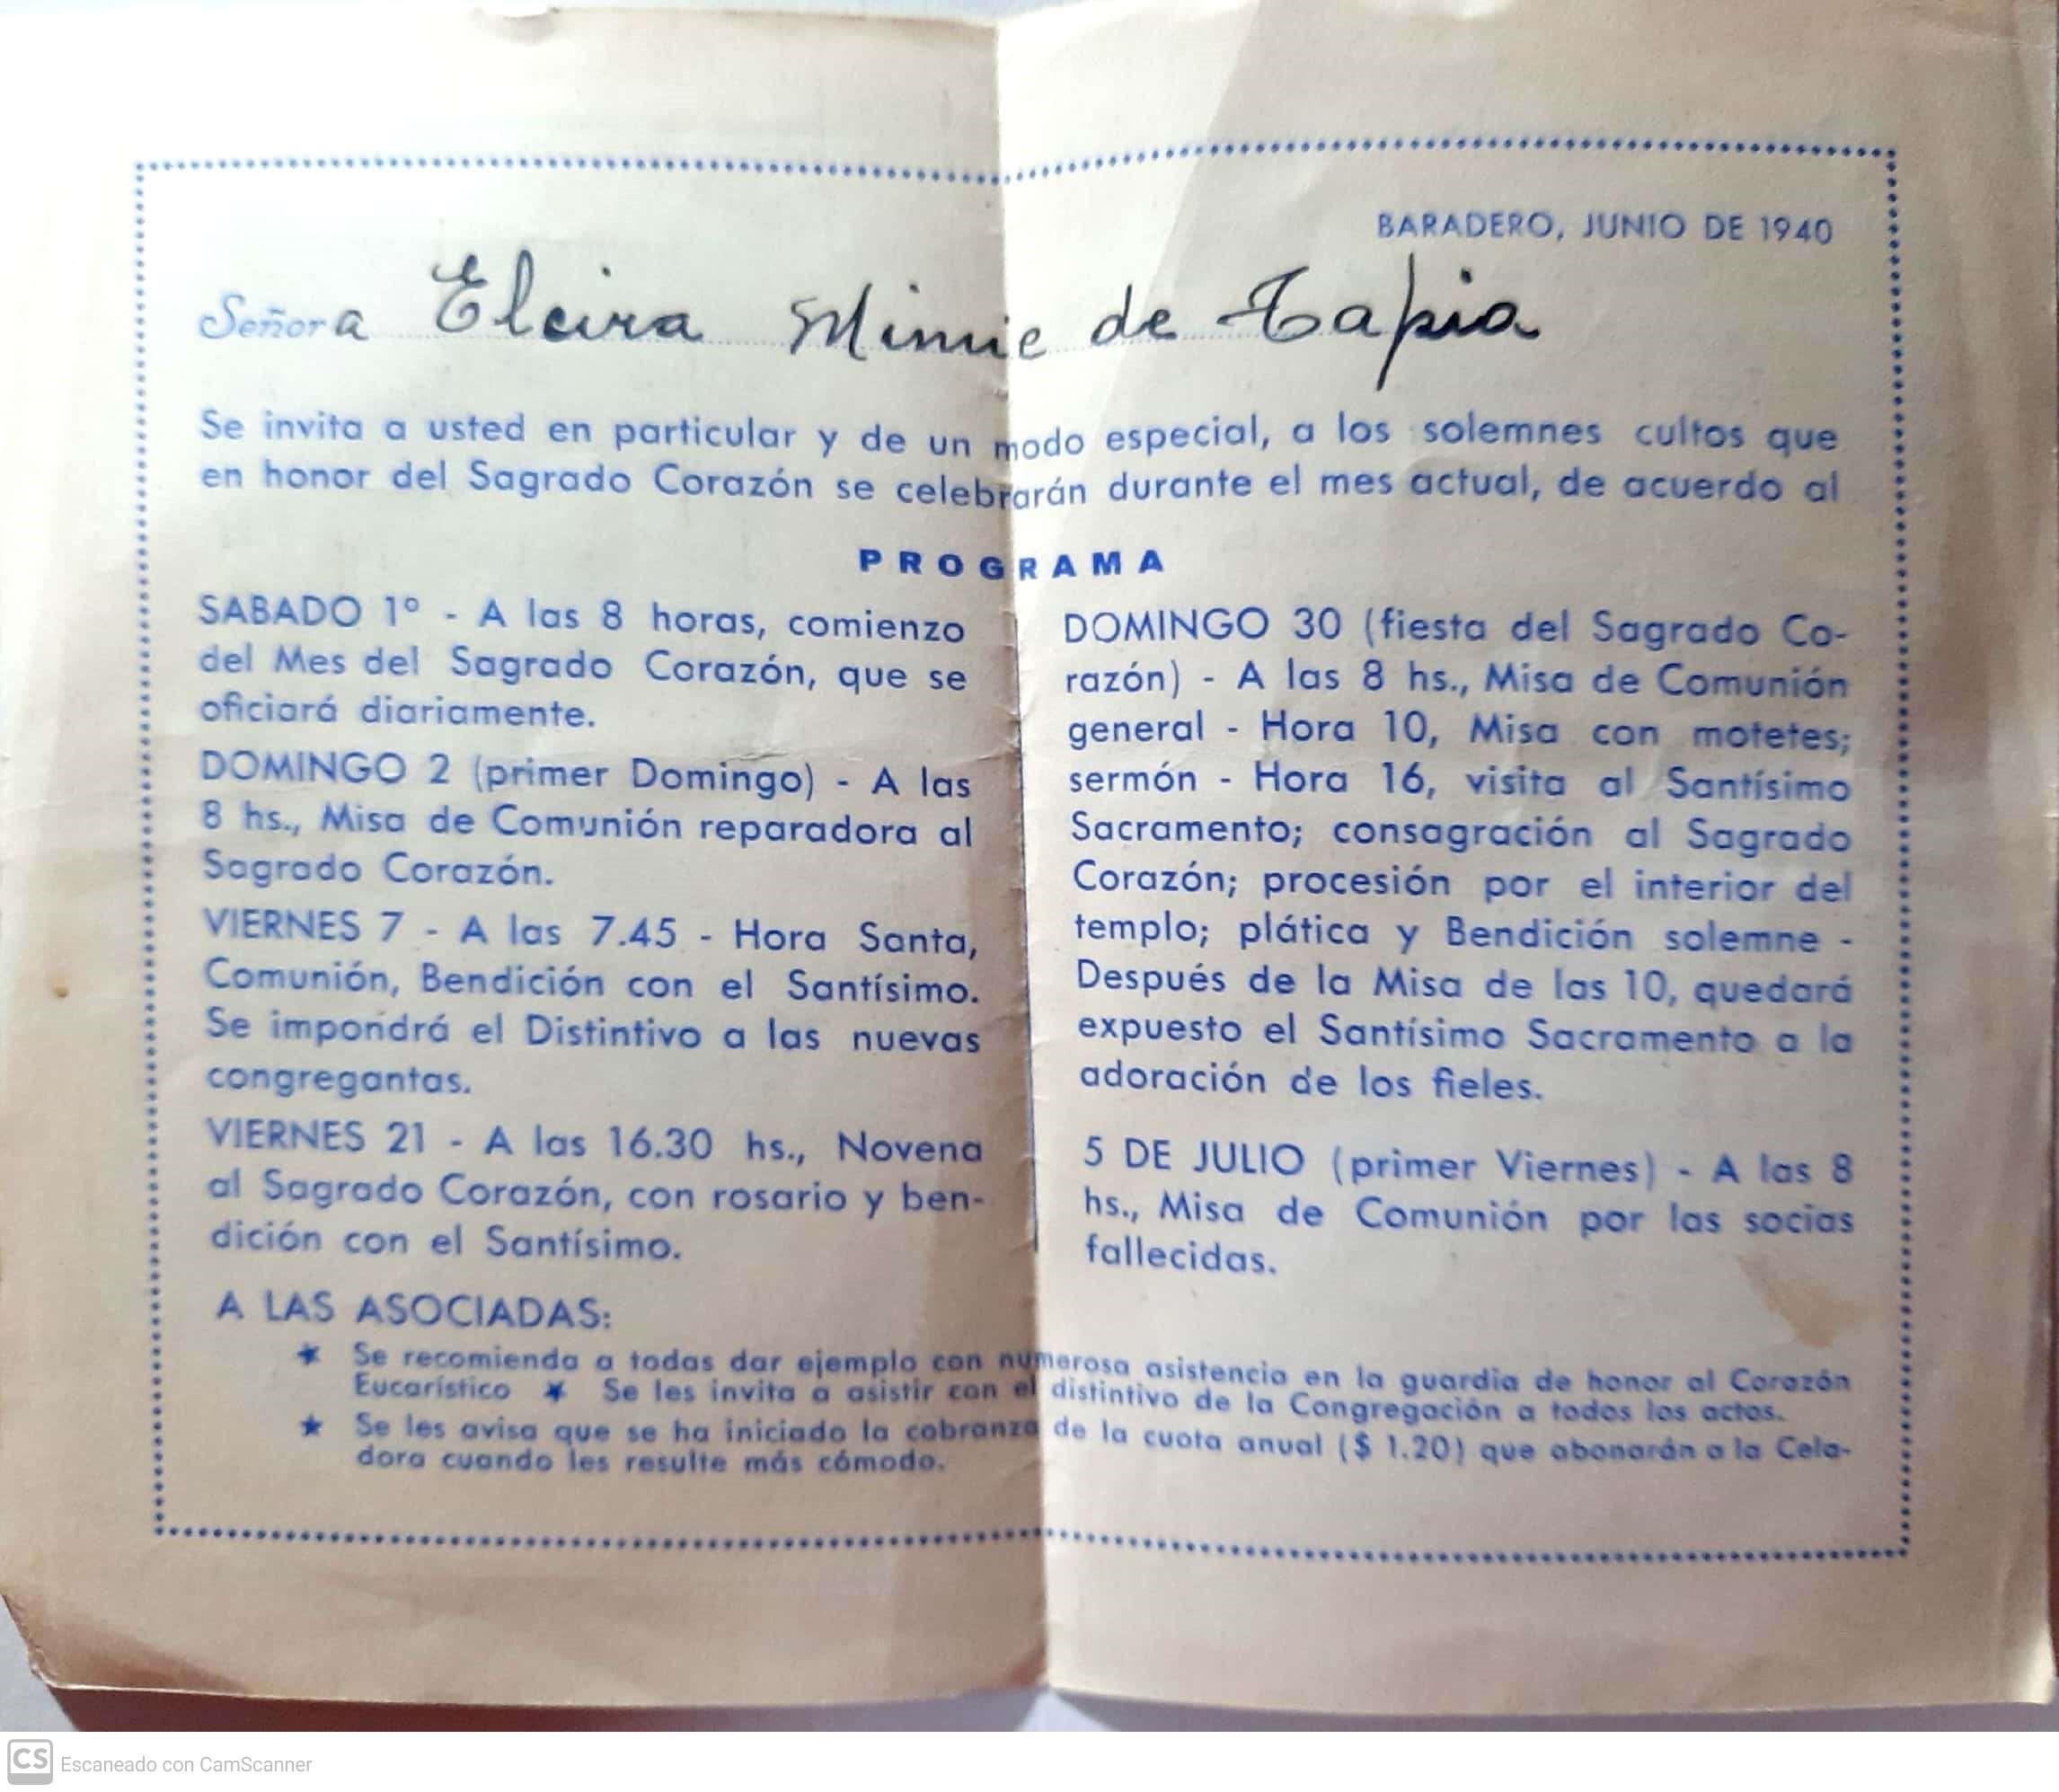 BARADERO, JUNIO DE 1940
Señora Elcira Minnie de Tapia
Se invita a usted en particular y de un modo especial, a los solemnes cultos que
en honor del Sagrado Corazón se celebrarán durante el mes actual, de acuerdo al
PROGRAMA
SABADO 1º - A las 8 horas, comienzo
del Mes del Sagrado Corazón, que se
oficiará diariamente.
DOMINGO 2 (primer Domingo) - A las
8 hs., Misa de Comunión reparadora al
Sagrado Corazón.
VIERNES 7 - A las 7.45 - Hora Santa,
Comunión, Bendición con el Santísimo.
Se impondrá el Distintivo a las nuevas
congregantas.
VIERNES 21 - A las 16.30 hs., Novena
al Sagrado Corazón, con rosario y ben-
dición con el Santísimo.
DOMINGO 30 (fiesta del Sagrado Co-
razón) - A las 8 hs., Misa de Comunión
general - Hora 10, Misa con motetes;
sermón - Hora 16, visita al Santísimo
Sacramento; consagración al Sagrado
Corazón; procesión por el interior del
templo; plática y Bendición solemne -
Después de la Misa de las 10, quedará
expuesto el Santísimo Sacramento a la
adoración de los fieles.
5 DE JULIO (primer Viernes) - A las 8
hs., Misa de Comunión por las socias
fallecidas.
A LAS ASOCIADAS:
★ Se recomienda a todas dar ejemplo con numerosa asistencia en la guardia de honor al Corazón
Eucarístico ★ Se les invita a asistir con el distintivo de la Congregación a todos los actos.
★ Se les avisa que se ha iniciado la cobranza de la cuota anual ($ 1.20) que abonarán a la Cela-
dora cuando les resulte más cómodo.
CS Escaneado con CamScanner